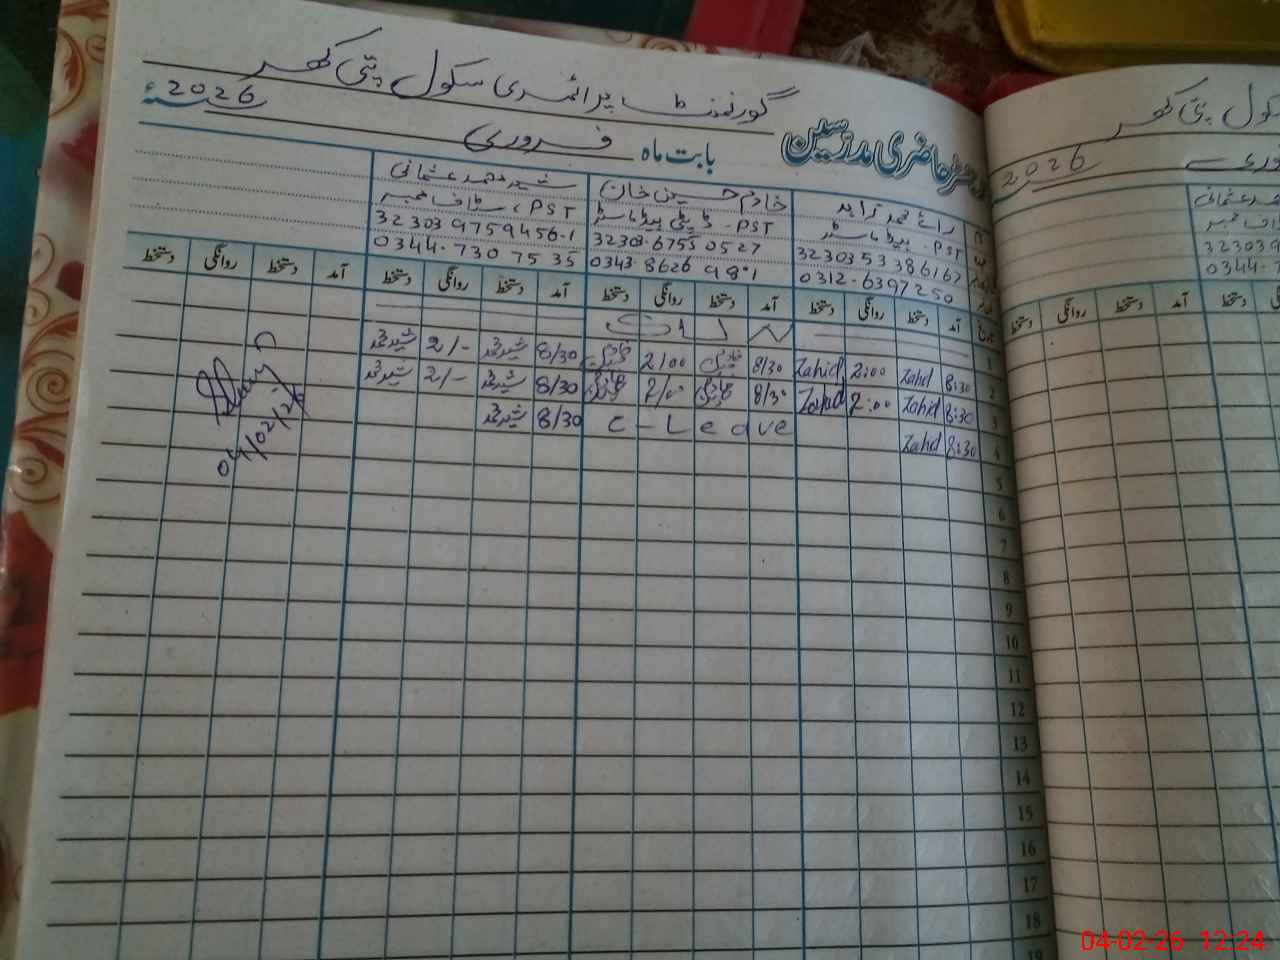 گورنمنٹ پرائمری سکول پتی کھر
رجسٹر حاضری مدرسین بابت ماہ فروری 2026ء
رائے محمد زاہد
PST - ہیڈ ماسٹر
3230353386167
0312-6397250
خادم حسین خان
PST - ڈپٹی ہیڈ ماسٹر
32303-6755 0527
0343-8626 981
شبیر محمد عثمانی
PST، سٹاف ممبر
32303 9759456-1
0344-730 7535
آمد دستخط روانگی دستخط آمد دستخط روانگی دستخط آمد دستخط روانگی دستخط آمد دستخط روانگی دستخط
1
2 8:30 Zahid 2:00 Zahid 8/30 خادم حسین 2/00 خادم حسین 8/30 شبیر محمد 2/- شبیر محمد
3 8:30 Zahid 2:00 Zahid 8/30 خادم حسین 2/00 خادم حسین 8/30 شبیر محمد 2/- شبیر محمد
4 8:30 Zahid C-Leave 8/30 شبیر محمد
04/02/26
5
6
7
8
9
10
11
12
13
14
15
16
17
18
19
2026
سکول پتی کھر
323039
0344-7
آمد دستخط روانگی دستخط
04-02-26 12:24